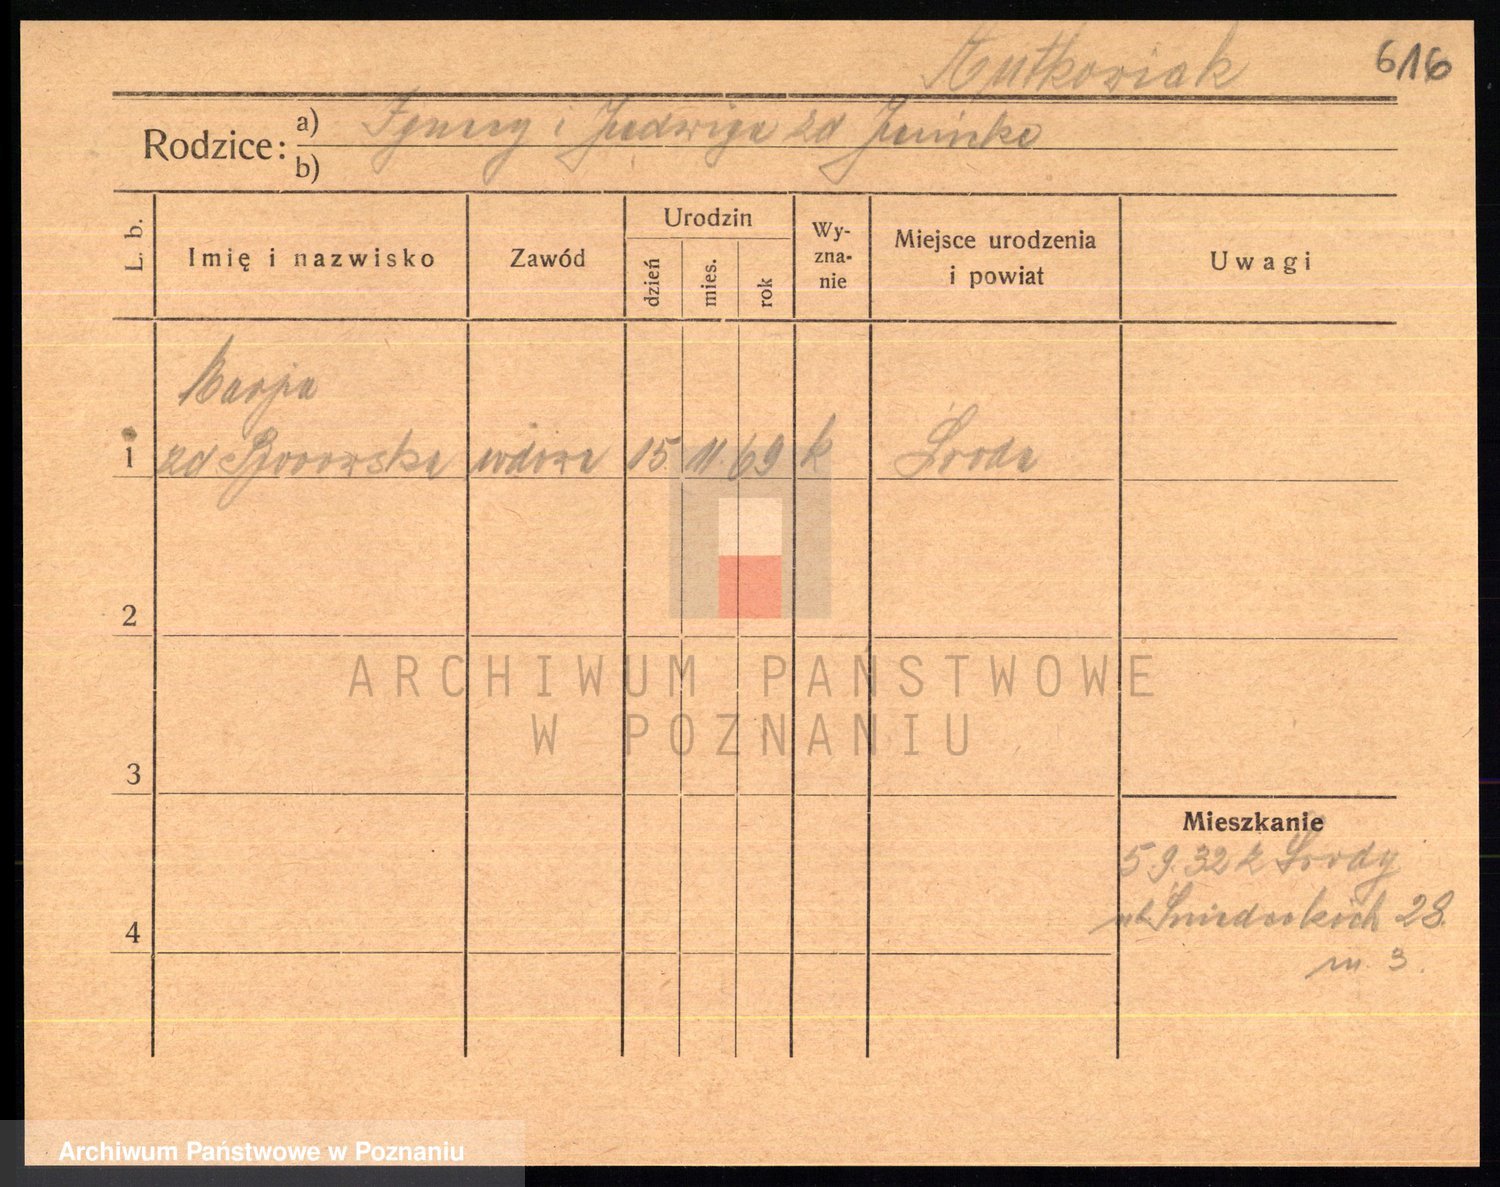 616
Rodzice: a) Ignacy i Jadwiga zd
b)
L. b.
Imię i nazwisko
Zawód
Urodzin
dzień
mies.
rok
Wy-
zna-
nie
Miejsce urodzenia
i powiat
Uwagi
Marja
1 zd Borowska wdowa 15 11 69 k Środa
2
3
4
Mieszkanie
5 9. 32 z Środy
ul. Śniadeckich 28.
m. 3.
ARCHIWUM PAŃSTWOWE
W POZNANIU
Archiwum Państwowe w Poznaniu